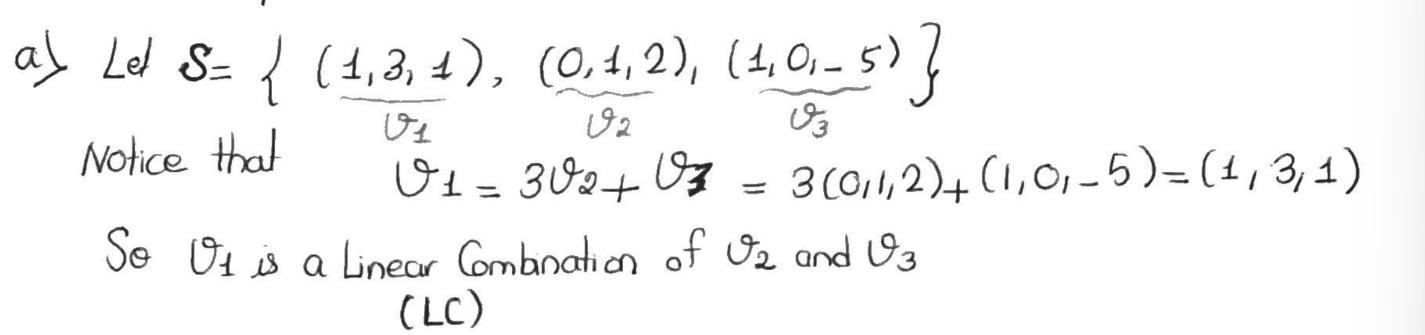 a) Let S= { (1,3,1), (0,1,2), (1,0,-5) }
v1 v2 v3
Notice that v1 = 3v2 + v3 = 3(0,1,2)+(1,0,-5)=(1,3,1)
So v1 is a Linear Combination of v2 and v3
(LC)